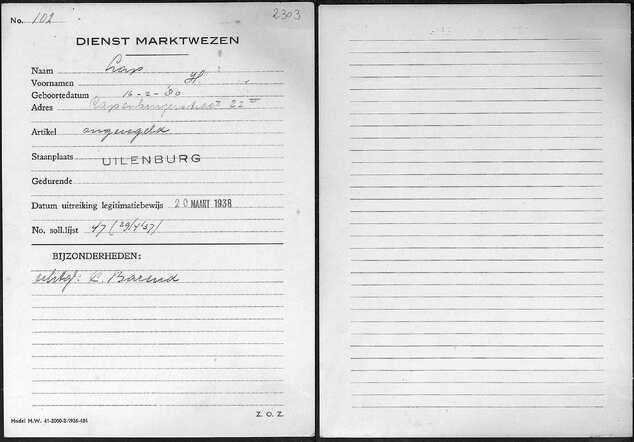 No. 102
2303
DIENST MARKTWEZEN
Naam Lap
Voornamen H.
Geboortedatum 16-2-80
Adres Rapenburgerstraat 22 III
Artikel ongeregeld
Staanplaats UILENBURG
Gedurende
Datum uitreiking legitimatiebewijs 20 MAART 1938
No. soll.lijst 47 (29/4 '37)
BIJZONDERHEDEN:
echtg: C. Barend
Z. O. Z.
Model M.W. 41-2000-2-1936-484